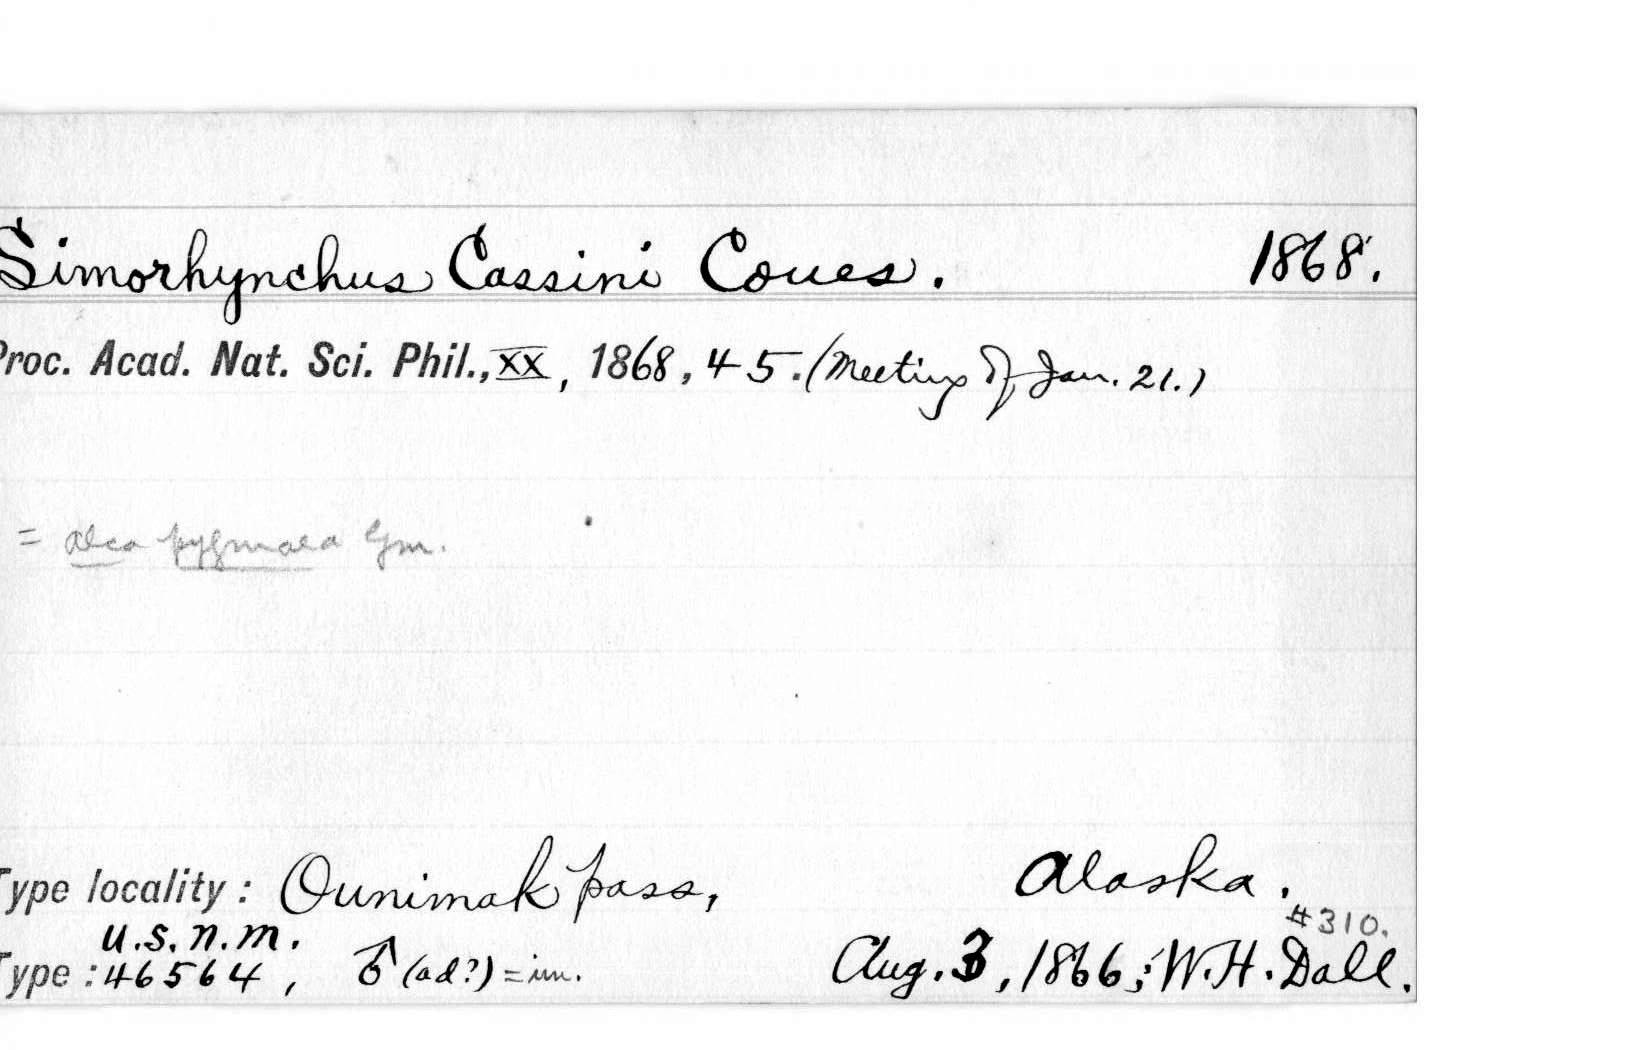 Simorhynchus Cassini Coues. 1868.
Proc. Acad. Nat. Sci. Phil., XX, 1868, 45. (Meeting of Jan. 21.)
= Alca pygmaea Gm.
Type locality: Ounimak pass, Alaska.
#310.
U.S.N.M.
Type: 46564, ♂ (ad?) = im. Aug. 3, 1866; W.H. Dall.